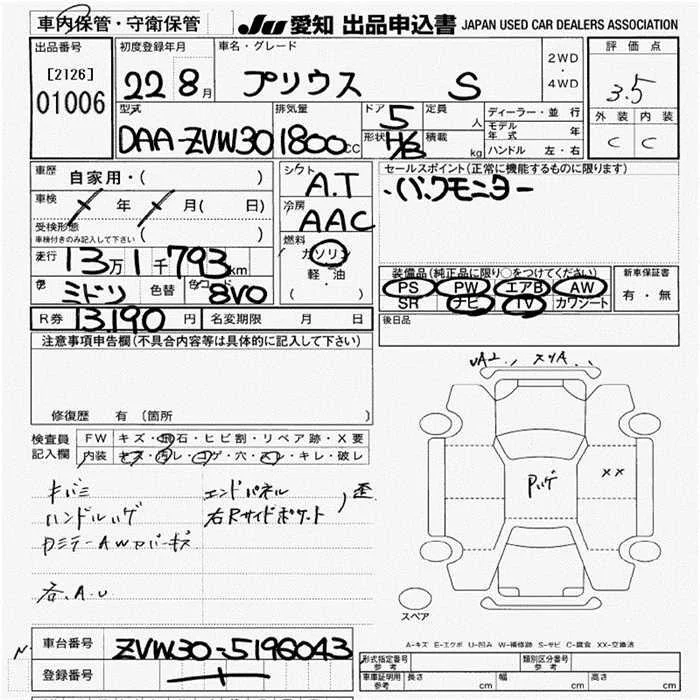 車内保管・守衛保管 JU 愛知 出品申込書 JAPAN USED CAR DEALERS ASSOCIATION
出品番号 初度登録年月 車名・グレード 2WD・4WD 評価点
[2126] 01006 22 8月 プリウス S 3.5
型式 排気量 ドア 5 定員 人 ディーラー・並行 外装 内装
DAA-ZVW30 1800cc 形状 H/B 積載 kg モデル年式 年 C C
ハンドル 左・右
車歴 自家用・( ) シフト A.T セールスポイント(正常に機能するものに限ります)
車検 年 月( 日) 冷房 AAC ・バックモニター
受検形態
車検付きのみ記入して下さい ( )
走行 13万1千793km 燃料 ガソリン 軽・油 ( )
装備品(純正品に限り○をつけてください) 新車保証書
PS PW エアB AW 有・無
色 ミドリ 色替 色コード 8V0 SR ナビ TV カワシート
R券 13,190円 名変期限 月 日 後日品
注意事項申告欄(不具合内容等は具体的に記入して下さい)
修復歴 有(箇所 )
検査員記入欄 FW キズ・飛石・ヒビ割・リペア跡・X要
内装 キズ・汚レ・コゲ・穴・スレ・キレ・破レ
キバミ エンドパネル
ハンドルハゲ 右Rサイドポケット 歪
AW
各.A.U
スリA
Pハゲ
XX
スペア
A-キズ E-エクボ U-凹み W-補修跡 S-サビ C-腐食 XX-交換済
車台番号 ZVW30-5196043
形式指定番号 参考 類別区分番号 参考
登録番号
車庫証明用 参考 長さ cm 幅 cm 高さ cm